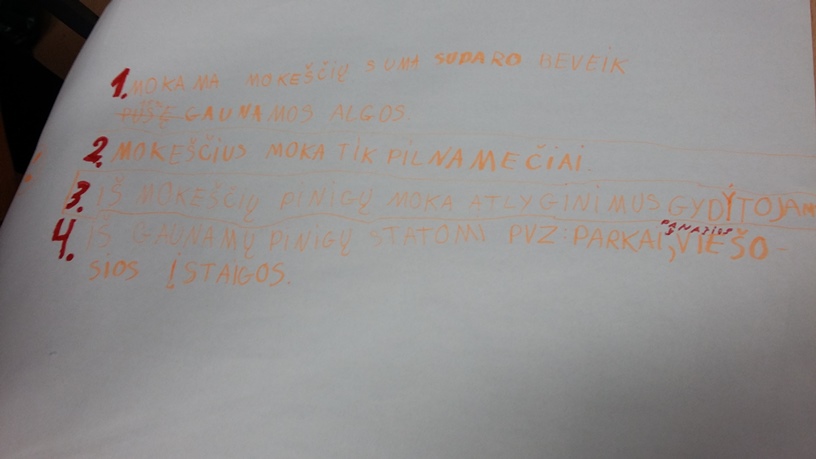 1. MOKAMA MOKEŠČIŲ SUMA SUDARO BEVEIK
PUSĘ GAUNAMOS ALGOS.
2. MOKEŠČIUS MOKA TIK PILNAMEČIAI.
3. IŠ MOKEŠČIŲ PINIGŲ MOKA ATLYGINIMUS GYDYTOJAM
4. IŠ GAUNAMŲ PINIGŲ STATOMI PVZ: PARKAI, VIEŠO-
SIOS ĮSTAIGOS.